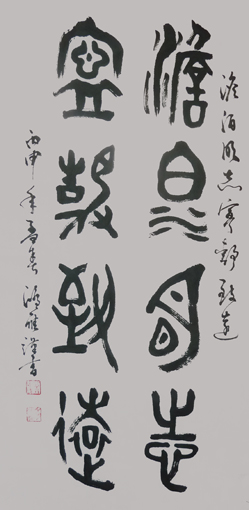 澹泊明志寧靜致遠
澹泊明志
寧靜致遠
丙申年春謹書